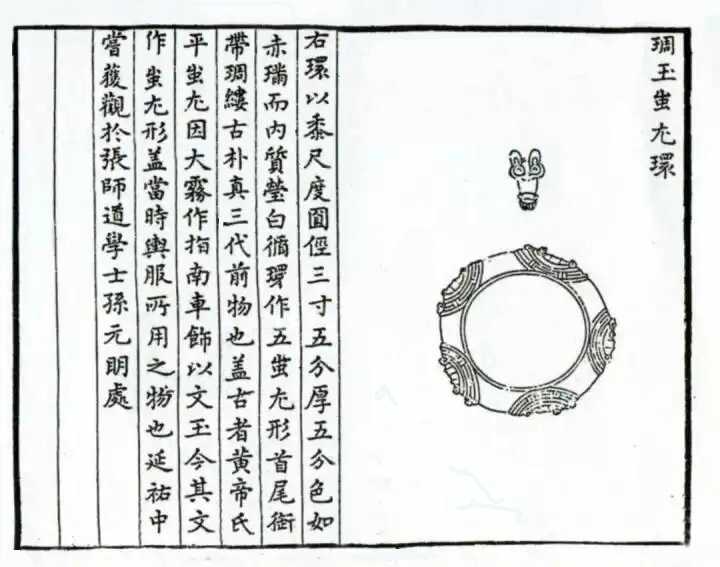 琱玉蚩尤環
右環以黍尺度圓徑三寸五分厚五分色如
赤璊而内質瑩白循環作五蚩尤形首尾銜
帶琱縷古朴真三代前物也盖古者黄帝氏
平蚩尤因大霧作指南車飾以文玉今其文
作蚩尤形盖當時輿服所用之物也延祐中
嘗獲觀於張師道學士孫元明處